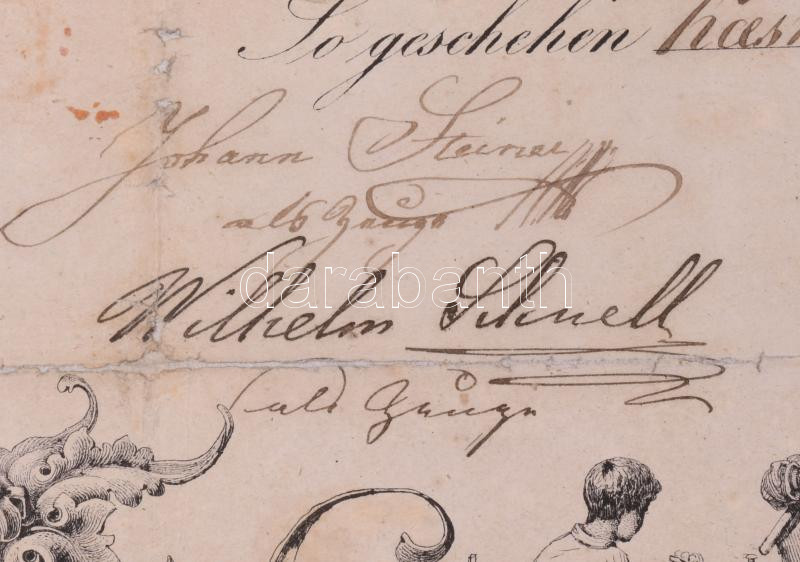 So geschehen
Johann Steiner
als Zeuge
darabanth
Wilhelm Schnell
als Zeuge